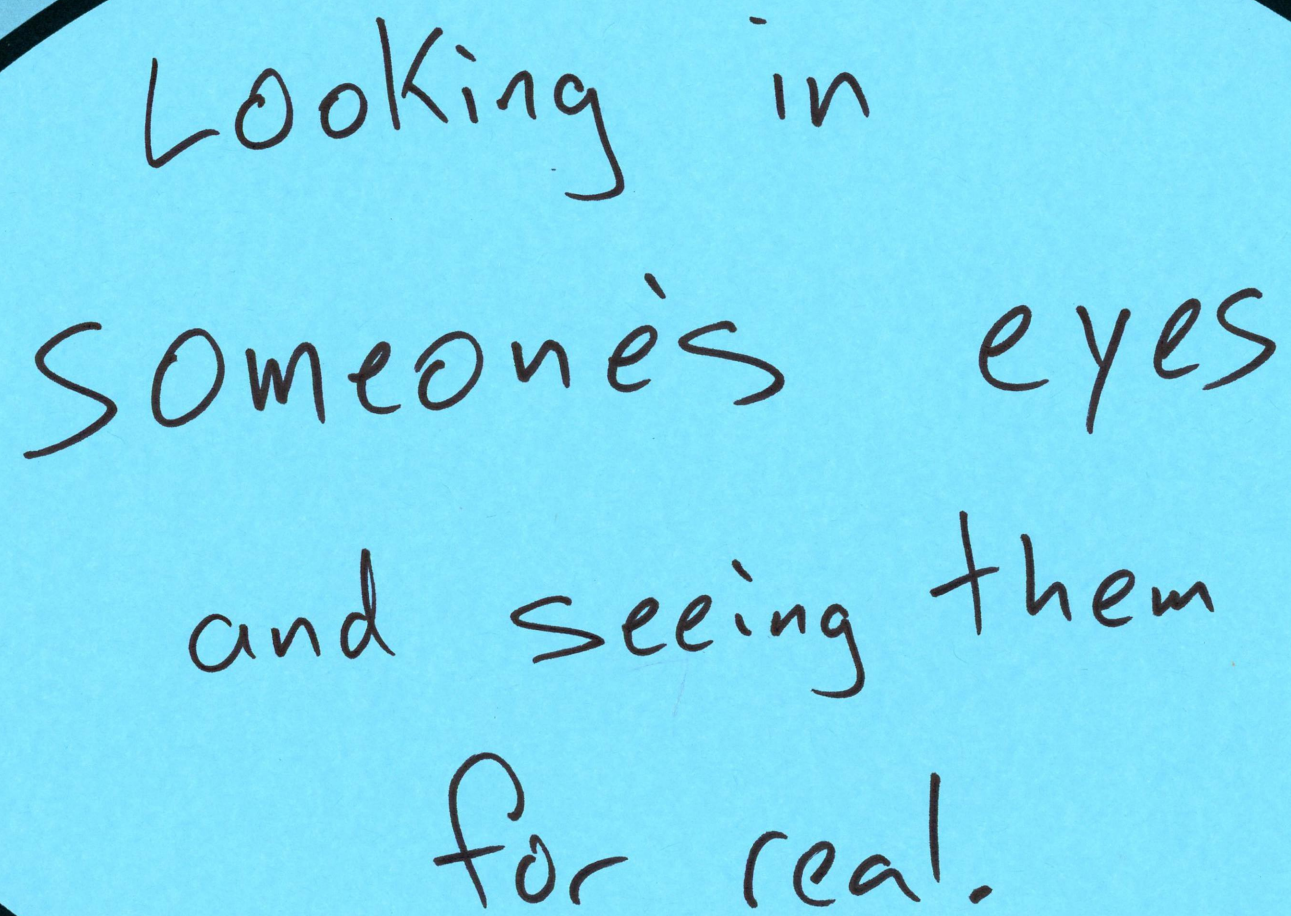 Looking in
someone's eyes
and seeing them
for real.